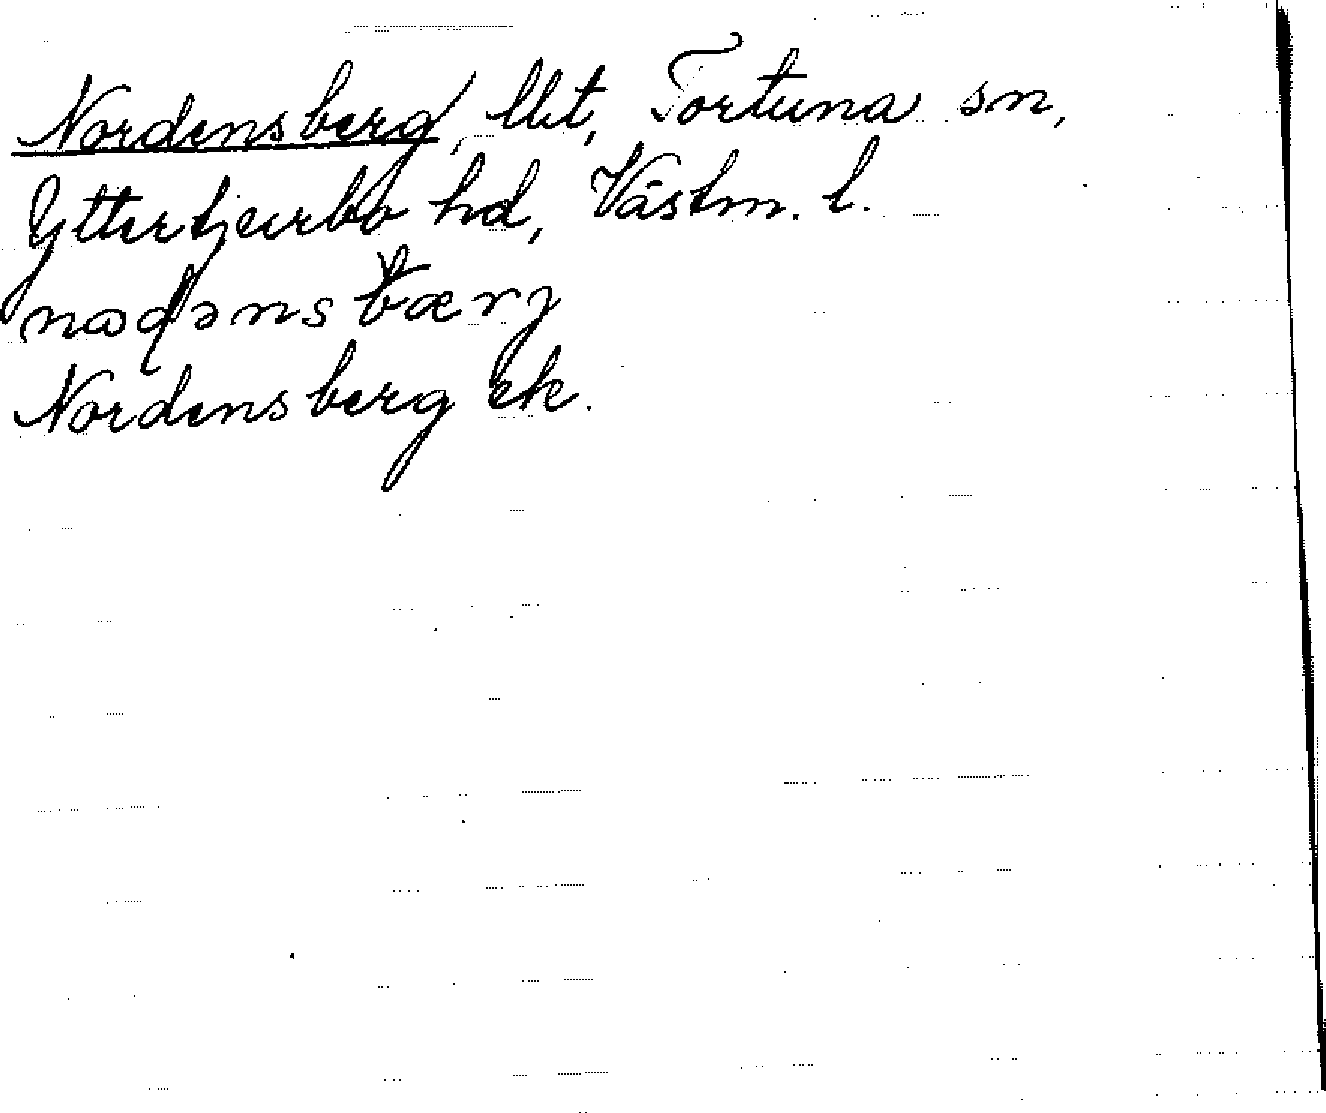 Nordensberg, lht, Tortuna sn,
Yttertjurbo hd, Västm. l.
Nordensberg ek.